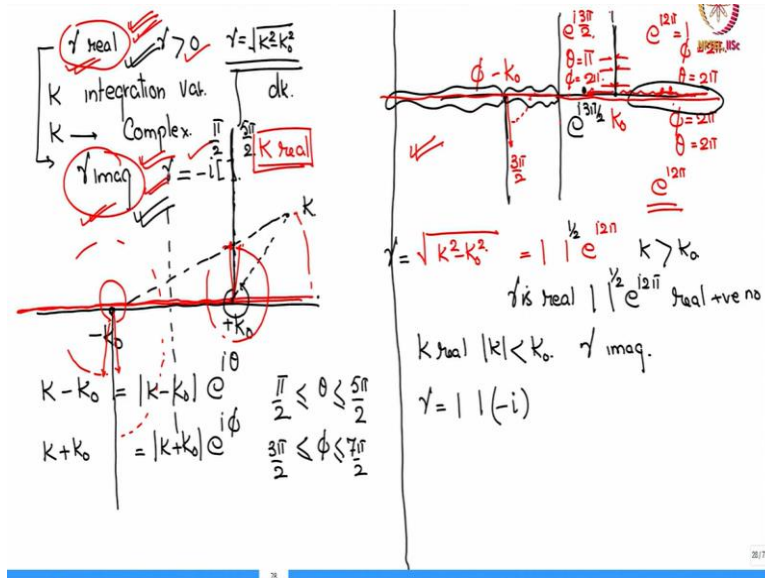 γ real γ > 0 γ = √K²-K₀²
K integration Var. dK.
K → Complex.
π/2 5π/2 K real
γ imag γ = -i[ ].
K
-K₀ +K₀
K - K₀ = |K-K₀| e^{iθ} π/2 ≤ θ ≤ 5π/2
K + K₀ = |K+K₀| e^{iϕ} 3π/2 ≤ ϕ ≤ 7π/2
e^{i3π/2} e^{i2π} = 1
θ = π
ϕ = 2π θ = 2π
ϕ - K₀
e^{i3π/2} K₀ ϕ = 2π
θ = 2π
3π/2
e^{i2π}
γ = √K²-K₀² = | |^{1/2} e^{i2π} K > K₀
γ is real | |^{1/2} e^{i2π} real +ve no
K real |K| < K₀. γ imag.
γ = | | (-i)
28/7
28